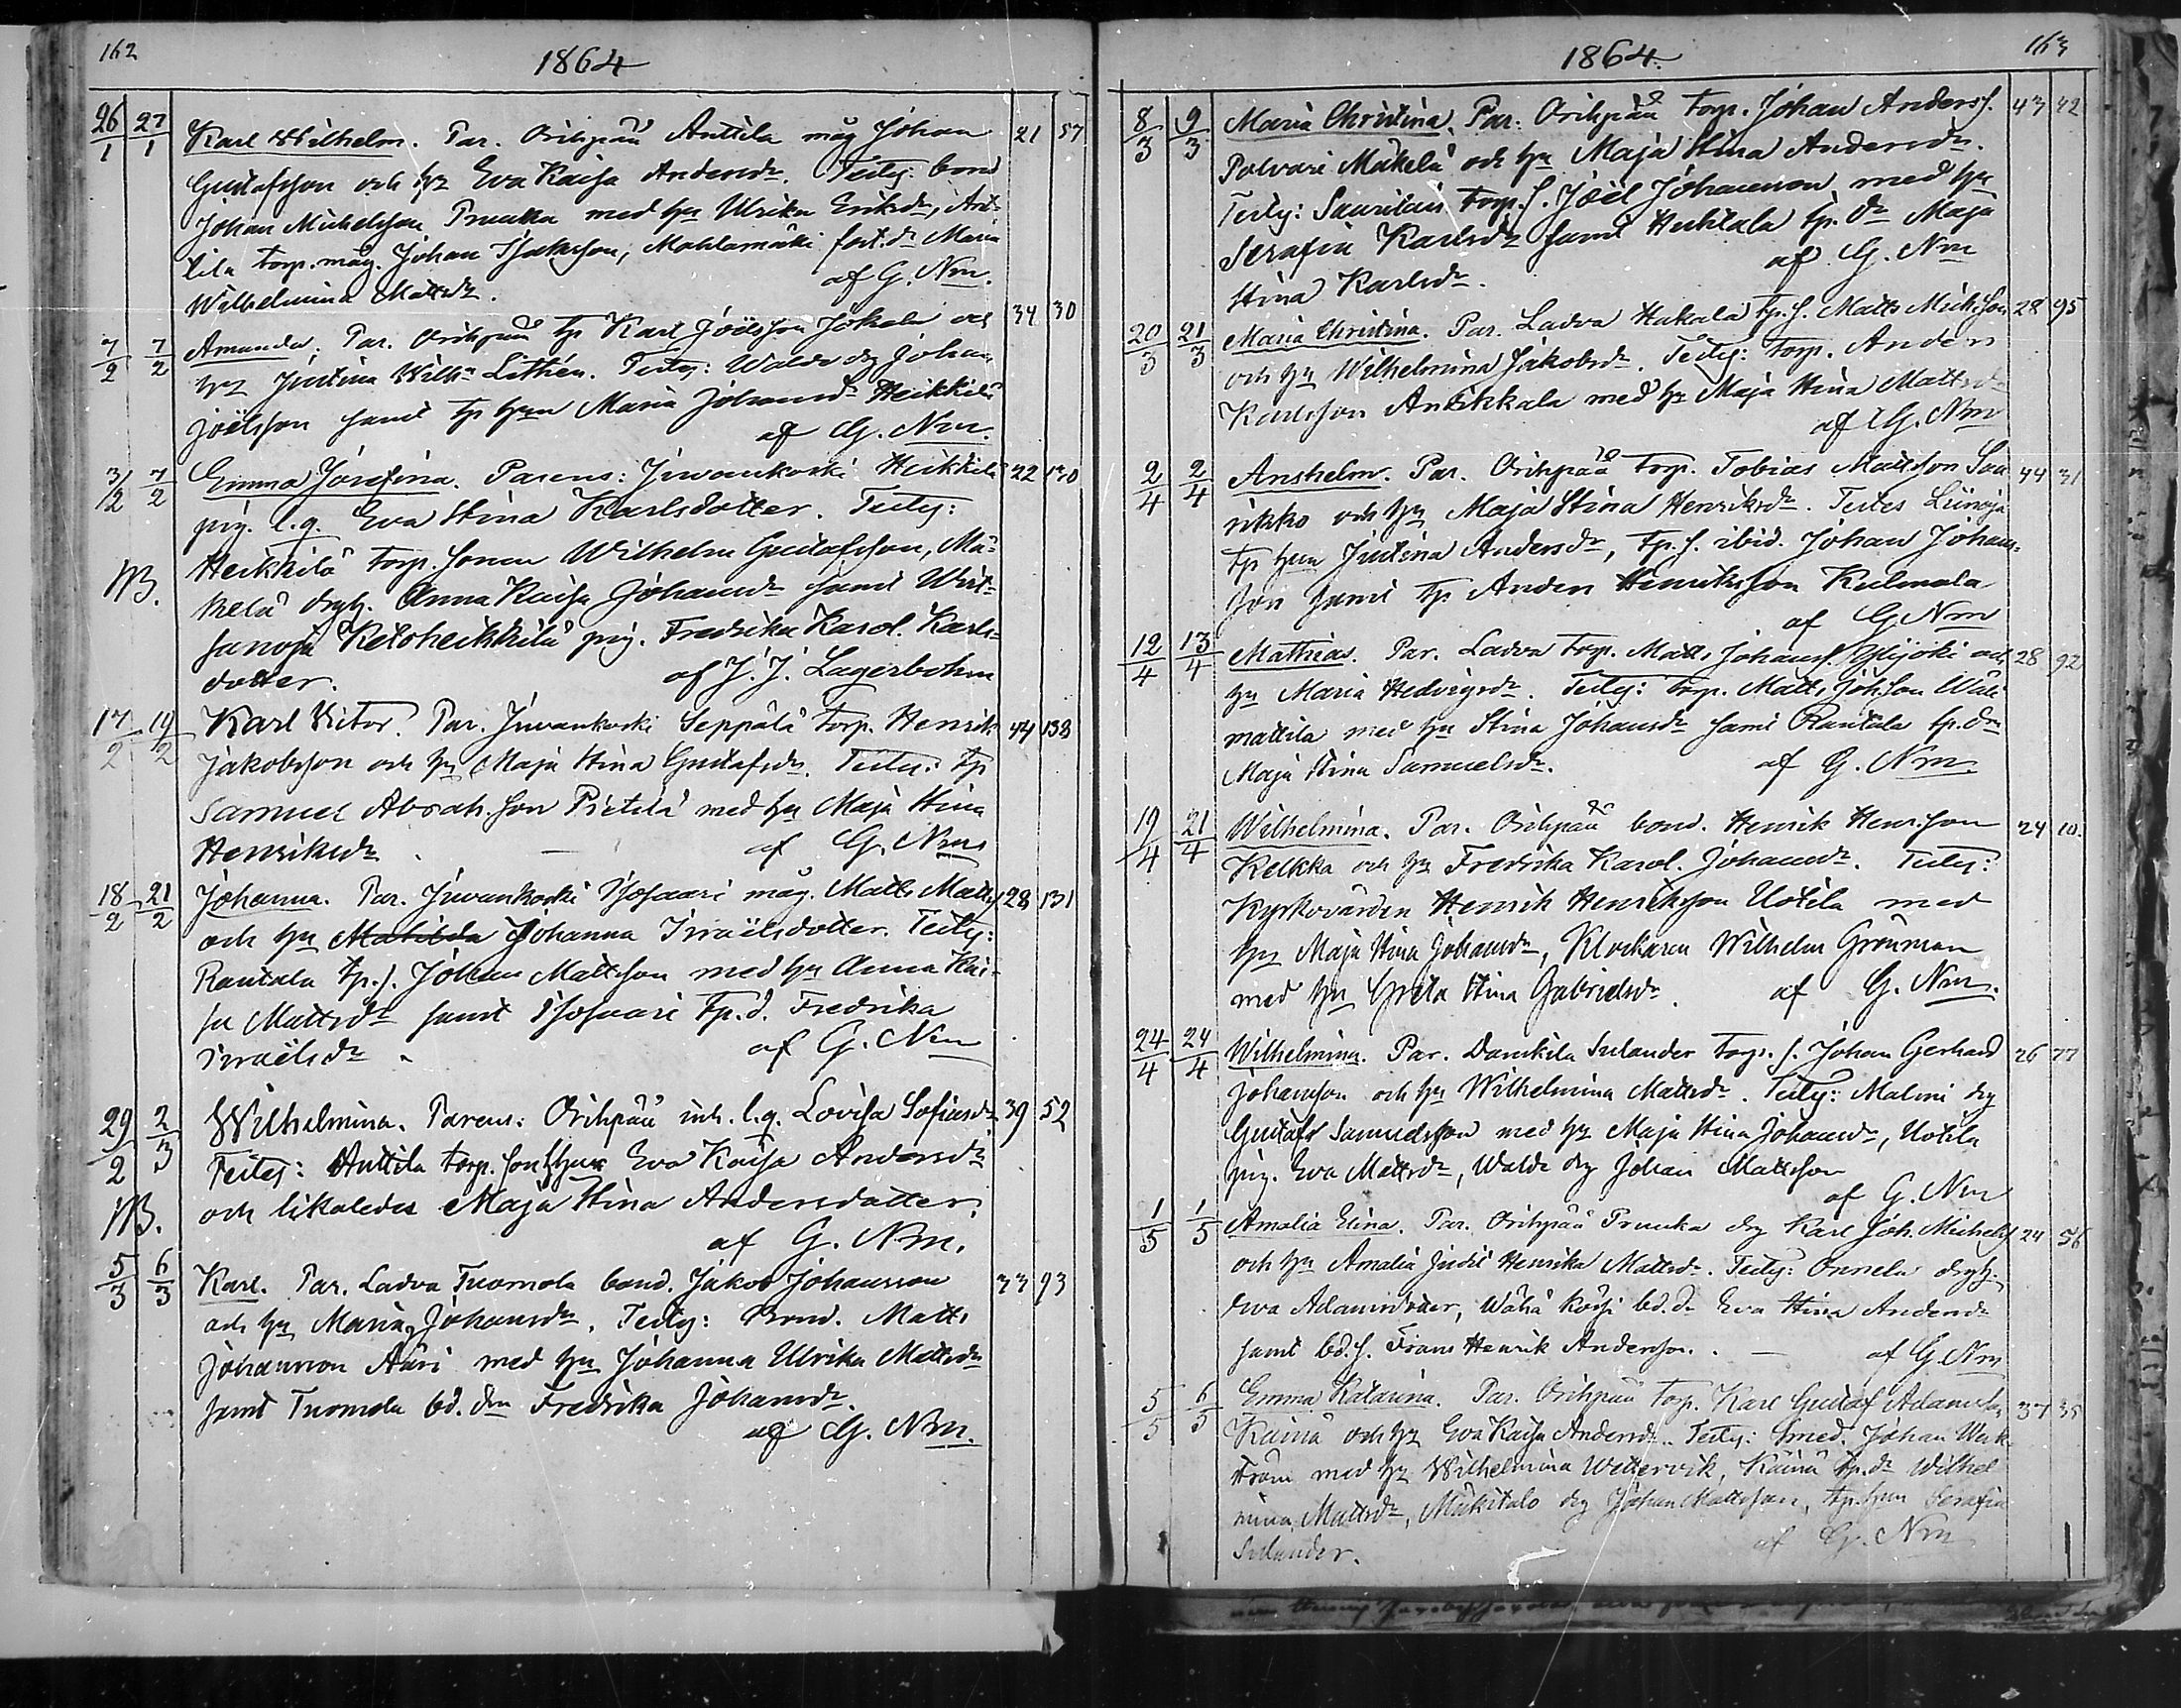 162
1864
26/1 27/1 Karl Wilhelm. Par. Oripää Anttila måg Johan 21 57
Gustafsson och hu Eva Kaisa Andersdr. Testes: bond
Johan Michelsson Prunka med hu Ulrika Eriksdr, Ant-
tila torp. måg. Johan Isaksson, Mahlamäki fost. dr Maria
Wilhelmina Mattsdr. af G. Nm.
7/2 7/2 Amanda. Par. Oripää tp Karl Joëlsson Jokela och 34 30
hu Justina Wilh:a Lithén. Testes: Walde drg Johan
Joëlsson samt tp hun Maria Johansdr Heikkilä
af G. Nm.
3/2 7/2 Emma Josefina. Parens: Juvankoski Heikkilä 22 130
pig. l.q. Eva Stina Karlsdotter. Testes:
Heikkilä torp. sonen Wilhelm Gustafsson, Mä-
NB. kelä drgh. Anna Kaisa Johansdr samt Wirt-
sanoja Keloheikkilä pig. Fredrika Karol. Karls-
dotter. af J. J. Lagerbohm
17/2 19/2 Karl Victor. Par. Juvankoski Seppälä torp. Henrik 44 138
Jakobsson och hu Maja Stina Gustafsdr. Testes: tp
Samuel Abrah.son Pietilä med hu Maja Stina
Henriksdr. — af G. Nm
18/2 21/2 Johanna. Par. Juvankoski Isosaari måg. Matts Matts 28 131
och hu Matilda Johanna Israëlsdotter. Testes:
Rantala tp. s. Johan Mattsson med hu Anna Kai-
sa Mattsdr samt Isosaari tp. d. Fredrika
Israëlsdr. af G. Nm
29/2 2/3 Wilhelmina. Parens: Oripää inh. l.q. Lovisa Sofiasdr. 39 52
Testes: Anttila torp. sonshun Eva Kaisa Andersdr
NB. och likaledes Maja Stina Andersdotter.
af G. Nm.
5/3 6/3 Karl. Par. Ladva Tuomola bond. Jakob Johansson 33 93
och hu Maria Johansdr. Testes: Bond. Matts
Johansson Aari med hu Johanna Ulrika Mattsdr
samt Tuomola bd. drn Fredrika Johansdr.
af G. Nm.
1864.
163
8/3 9/3 Maria Christina. Par. Oripää torp. Johan Anders s. 43 42
Polvari Mäkelä och hu Maja Stina Andersdr.
Testes: torp. s. Joël Johansson med hu
Serafia Karlsdr samt Huhtala tp. dr Maja
Stina Karlsdr. af G. Nm
20/3 21/3 Maria Christina. Par. Ladva Hakala tp. s. Matts Mich.son 28 95
och hu Wilhelmina Jakobsdr. Testes: torp. Anders
Karlsson Antikkala med hu Maja Stina Mattsdr
af G. Nm
2/4 2/4 Anshelm. Par. Oripää torp. Tobias Mattsson Sau 44 31
rikko och hu Maja Stina Henriksdr. Testes Liinoja
tp hun Justina Andersdr, tp. s. ibid. Johan Johans-
son samt tp Anders Henriksson Kulmala
af G. Nm
12/4 13/4 Mathias. Par. Ladva torp. Matts Johanss. Ylijoki och 28 92
hu Maria Hedvigsdr. Testes: torp. Matts Joh.son Wäli
mattila med hu Stina Johansdr samt Rantala tp. drn
Maja Stina Samuelsdr. af G. Nm.
19/4 21/4 Wilhelmina. Par. Oripää bond. Henrik Henr.son 24 10.
Kelkka och hu Fredrika Karol. Johansdr. Testes:
Kyrkovärden Henrik Henriksson Uotila med
hu Maja Stina Johansdr, Klockaren Wilhelm Grönman
med hu Greta Stina Gabrielsdr. af G. Nm.
24/4 24/4 Wilhelmina. Par. Danskila Sulander torp. s. Johan Gerhard 26 77
Johansson och hu Wilhelmina Mattsdr. Testes: Malmi drg
Gustaf Samuelsson med hu Maja Stina Johansdr, Uotila
pig. Eva Mattsdr, Walde drg Johan Mattsson
af G. Nm
1/5 1/5 Amalia Elina. Par. Oripää Prunka drg Karl Joh. Michelss 24 56
och hu Amalia Judit Henrika Mattsdr. Testes: Onnela drgh.
Eva Adamsdotter, Wähä Korpi bd. dr Eva Stina Andersdr
samt bd. s. Frans Henrik Andersson. — af G. Nm
5/5 6/5 Emma Katarina. Par. Oripää torp. Karl Gustaf Adamsson 37 35
Kainu och hu Eva Kaisa Andersdr. Testes: Smed. Johan Wek
ström med hu Wilhelmina Wettervik, Kainu tp. dr Wilhel
mina Mattsdr, Mäkitalo drg Johan Mattsson, tp. hun Serafia
Sulander. af G. Nm